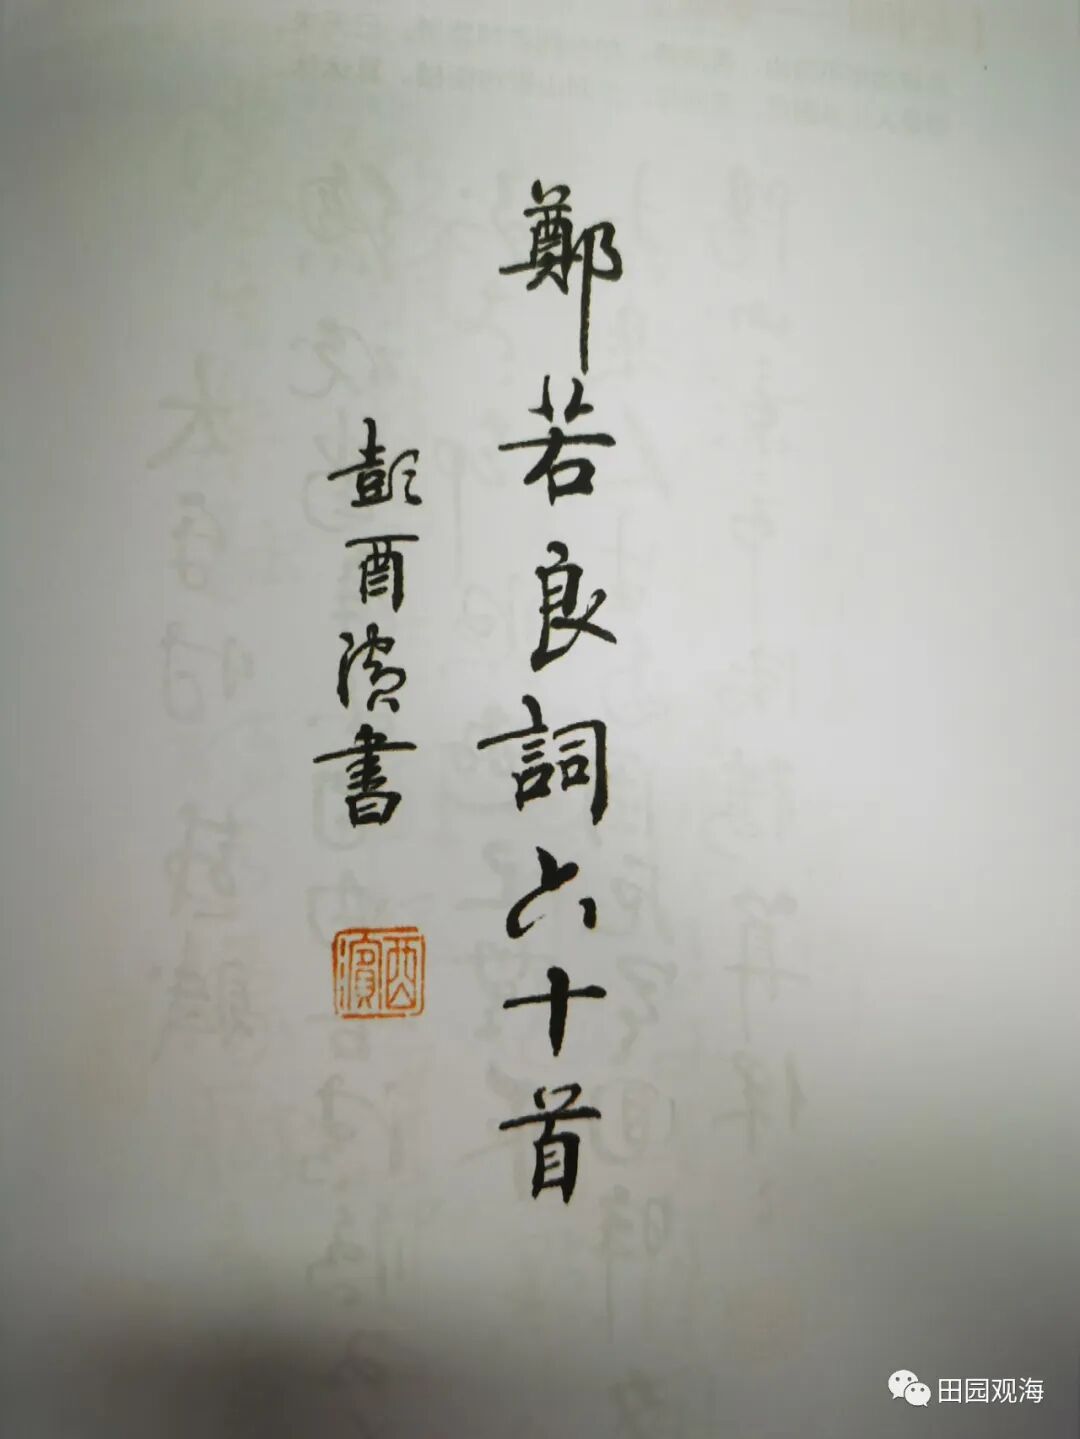 鄭若良詞六十首
彭酉濱書
酉濱
田园观海